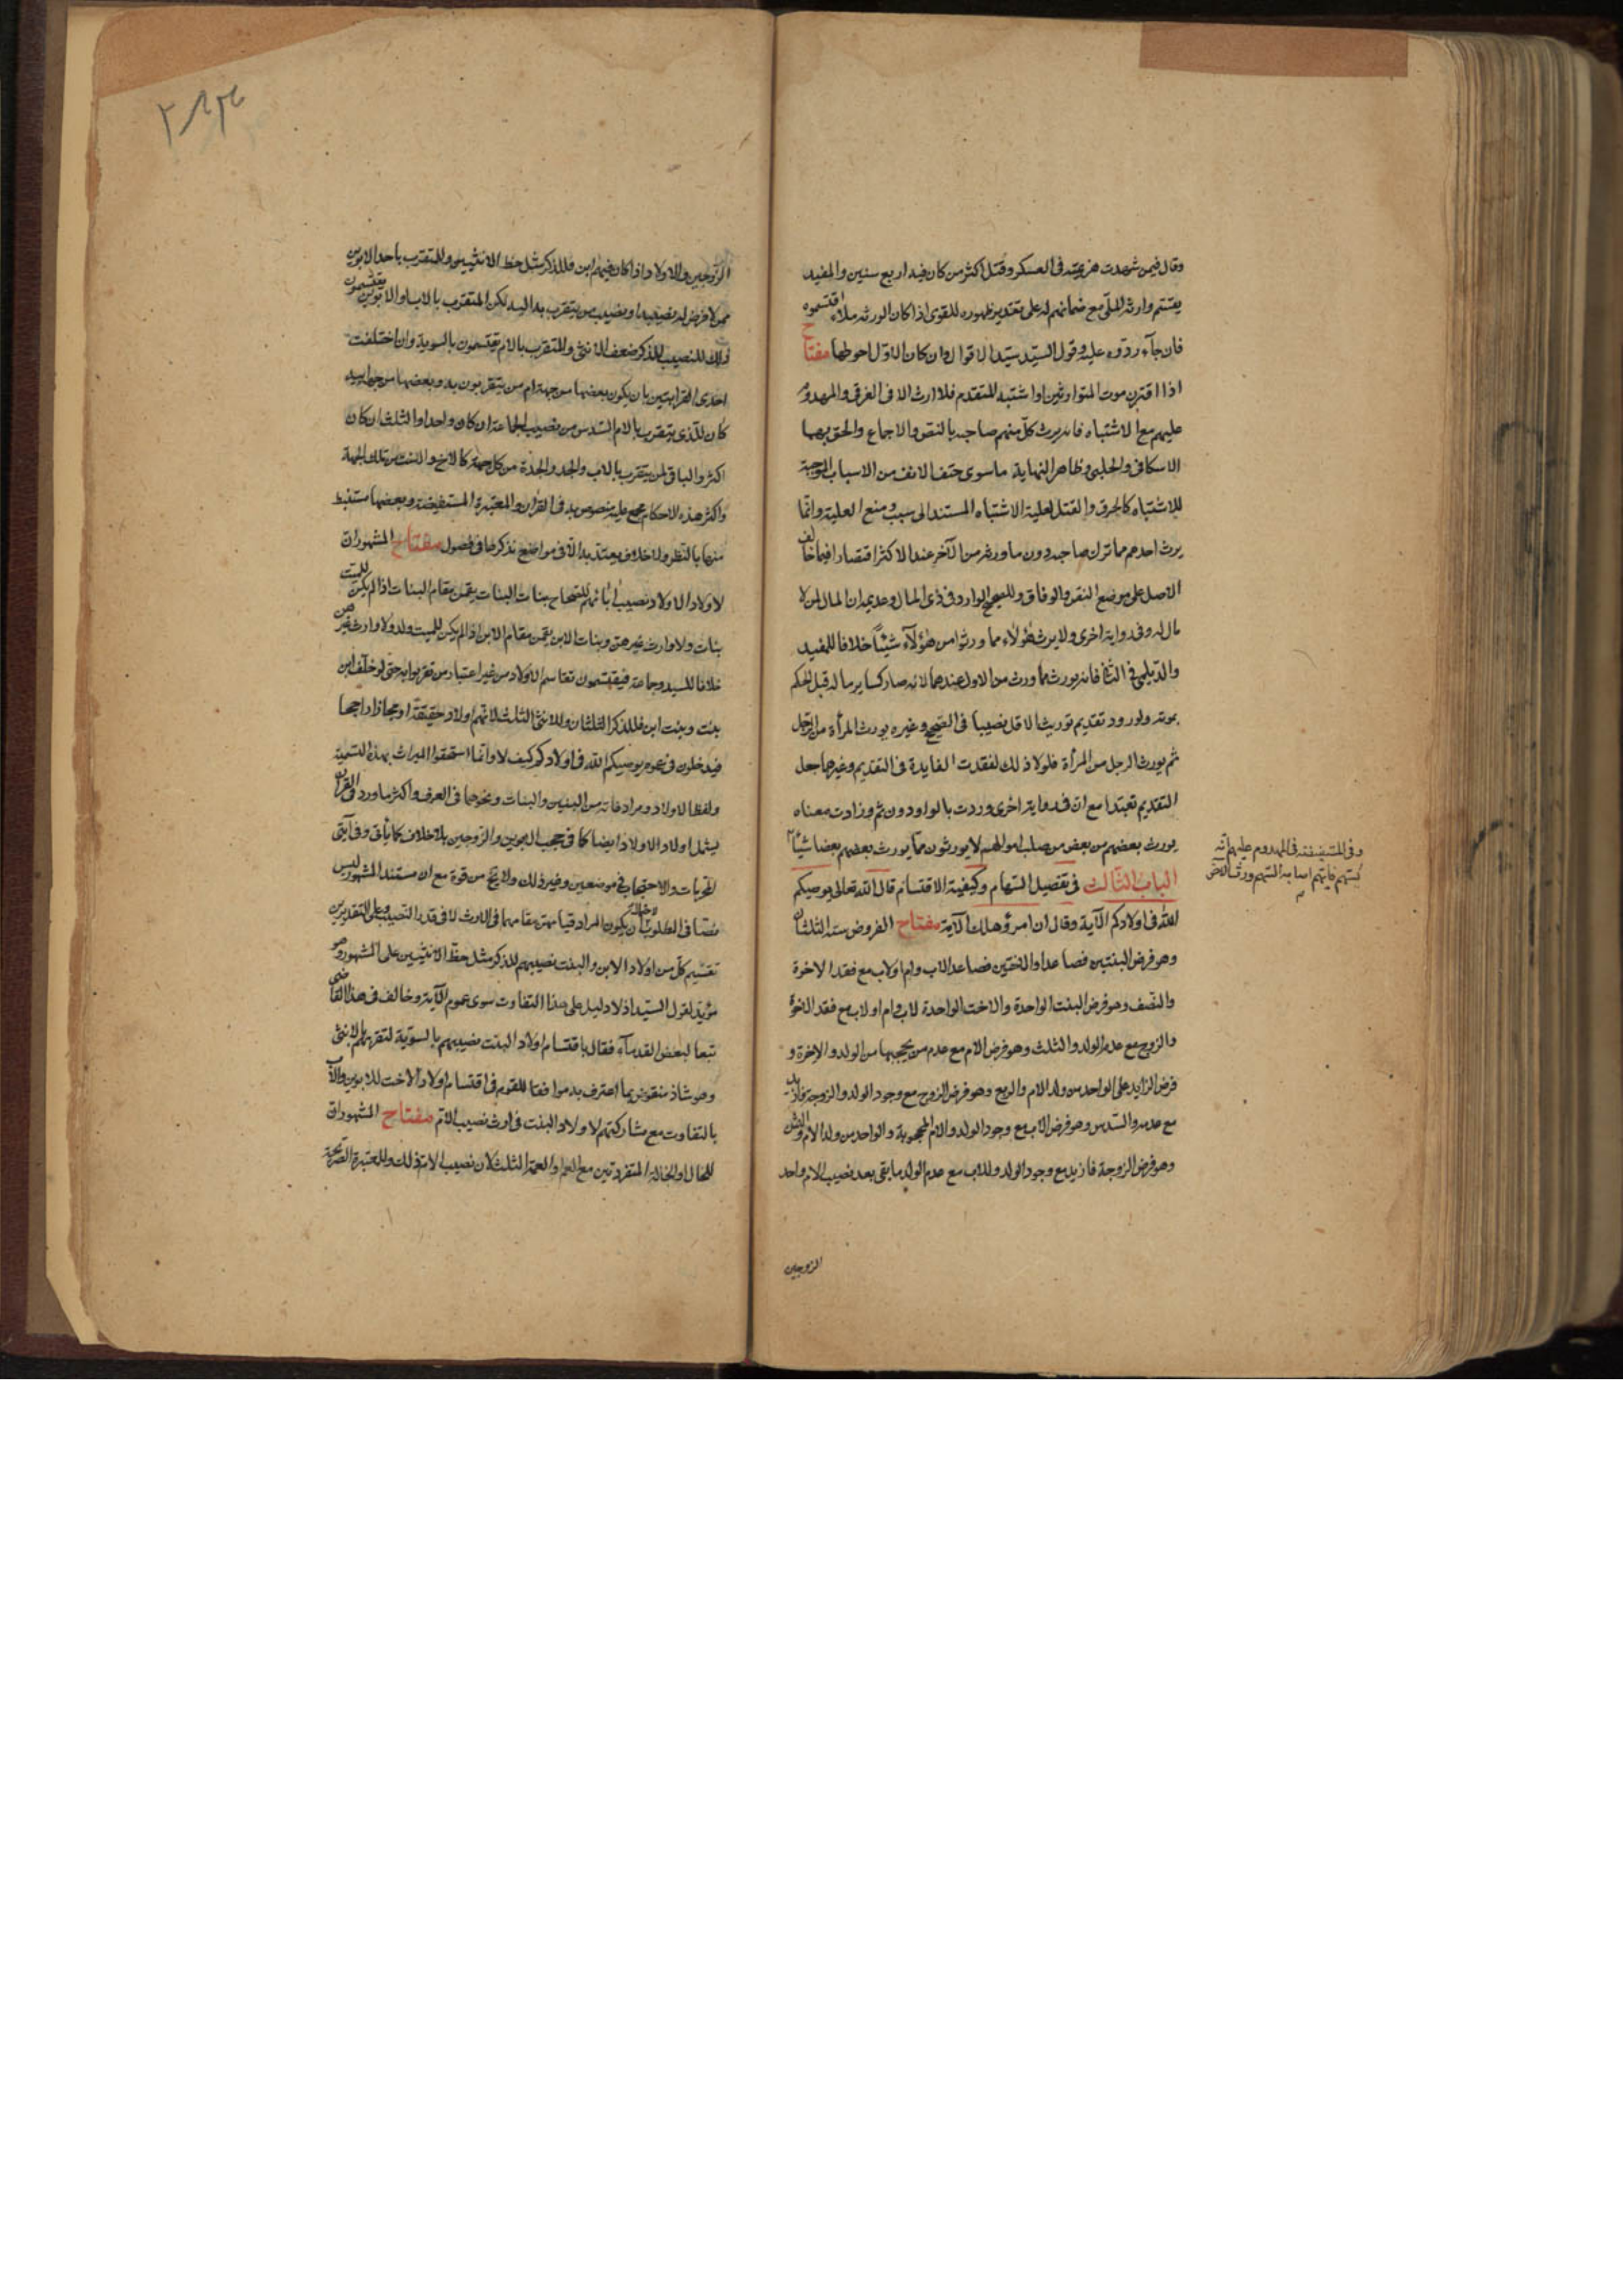 وقال فيمن شهدت هزيمته في العسكر وقتل اكثر من كان فيه اربع سنين والمفيد
يقتسم وارثه الملّي مع ضمانهم له على تقدير ظهوره للقوي اذا كان الورثه ملاء اقتسموه
فان جآء ردّوه عليه وقول السيّد سيّد الاقوال وان كان الاوّل احوطها مفتاح
اذا اقترن موت المتوارثين او اشتبه المتقدم فلا ارث الا في الغرقى والمهدوم
عليهم مع الاشتباه فانه يرث كلّ منهم صاحبه بالنص والاجماع والحق بهما
الاسكافي والحلبي وظاهر النهاية ما سوى حتف الانف من الاسباب الموجبة
للاشتباه كالحرق والقتل لعلية الاشتباه المستند الى سبب ومنع العلية وانّما
يرث احدهم مما ترك صاحبه دون ما ورثه من الآخر عند الاكثر اقتصارا فيما خالف
الاصل على موضع النص والوفاق وللصحيح الوارد في ذي المال وعديمه ان المال لمن لا
مال له وفي رواية اخرى ولا يرث هؤلاء مما ورثوا من هؤلآء شيئاً خلافا للمفيد
والدّيلمي في الثاني فانه يورث مما ورث من الاول عندهما لانه صار كساير ماله قبل الحكم
بموته ولورود تقديم توريث الاقل نصيبا في الصحيح وغيره يورث المرأة من الرجل
ثم يورث الرجل من المرأة فلولا ذلك لفقدت الفايدة في التقديم وغيرهما جعل
التقديم تعبّدا مع ان في رواية اخرى وردت بالواو دون ثم وزادت معناه
يورث بعضهم من بعض من صلب اموالهم لا يورثون مما يورث بعضهم بعضا شيئاً
وفي المستفيضة في المهدوم عليهم انه
يسهم فايّهم اصابه السّهم ورث الاخر
الباب الثالث في تفصيل السّهام وكيفية الاقتسام قال الله تعالى يوصيكم
الله في اولادكم الآية وقال ان امرؤ هلك الآية مفتاح الفروض ستة الثلثان
وهو فرض البنتين فصاعدا والاختين فصاعدا لاب وام او لاب مع فقد الاخوة
والنّصف وهو فرض البنت الواحدة والاخت الواحدة لاب وام او لاب مع فقد الاخوة
والزوج مع عدم الولد والثلث وهو فرض الام مع عدم من يحجبها من الولد والاخوة و
فرض الزايد على الواحد من ولد الام والربع وهو فرض الزوج مع وجود الولد والزوجة فازيد
مع عدمه والسّدس وهو فرض الاب مع وجود الولد والام المحجوبة والواحد من ولد الام والثمن
وهو فرض الزوجة فازيد مع وجود الولد وللاب مع عدم الولد ما بقي بعد نصيب الام واحد
الزوجين
الزوجين والاولاد اذا كان فيهم ابن فللذكر مثل حظ الانثيين وللمتقرب باحد الابوين
ممن لا فرض له نصيب من يتقرب به اليه لكن المتقرب بالاب او الابوين يقتسمون
ذلك النصيب للذكر ضعف الانثى والمتقرب بالام يقتسمون بالسوية وان اختلفت
احدى القرابتين بان يكون بعضها من جهة ام من يتقربون به وبعضها من جهة ابيه
كان للّذي يتقرب بالام السّدس من نصيب الجماعة ان كان واحدا والثلث ان كان
اكثر والباقي لمن يتقرب بالاب والجد والجدة من كل جهة كالاخ والاخت من تلك الجهة
واكثر هذه الاحكام مجمع عليه منصوص به في القرآن والمعتبرة المستفيضة وبعضها مستنبط
منها بالنظر ولا خلاف يعتدّ به الّا في مواضع نذكرها في فصول مفتاح المشهور ان
لاولاد الاولاد نصيب آبائهم للصحاح بنات البنات يقمن مقام البنات اذا لم يكن للميت
بنات ولا وارث غيرهن وبنات الابن يقمن مقام الابن اذا لم يكن للميت ولد ولا وارث غيرهن
خلافا للسيد وجماعة فيقتسمون تقاسم الاولاد من غير اعتبار من تقربوا به حتى لو خلّف ابن
بنت وبنت ابن فللذكر الثلثان وللانثى الثلث لانّهم اولاد حقيقة او مجازا راجحا
فيدخلون في عموم يوصيكم الله في اولادكم كيف لا وانما استحقوا الميراث بهذه التسمية
ولفظ الاولاد ومرادفاته من البنين والبنات ونحوهما في العرف واكثر ما ورد في القرآن
يشمل اولاد الاولاد ايضا كما في حجب الابوين والزوجين بلا خلاف كما يأتي وفي آيتي
المحرمات والاحتجاب في موضعين وغير ذلك ولا يخ من قوة مع ان مستند المشهور ليس
نصّا في المطلوب لاحتمال ان يكون المراد قيامهن مقامهما في الارث لا في قدر النصيب وعلى التقديرين
تقسيم كلّ من اولاد الابن والبنت نصيبهم للذكر مثل حظّ الانثيين على المشهور وهو
مؤيّد لقول السيّد اذ لا دليل على هذا التفاوت سوى عموم الآية وخالف في هذا القاضي
تبعا لبعض القدمآء فقال باقتسام اولاد البنت نصيبهم بالسويّة لتقربهم بالانثى
وهو شاذ منقوض بما اعترف به موافقا للقوم في اقتسام اولاد الاخت للابوين والاب
بالتفاوت مع مشاركتهم لاولاد البنت في ارث نصيب الام مفتاح المشهور ان
للخال او الخالة المتفردتين مع العم او العمة الثلث لان نصيب الام ذلك وللمعتبرة الصريحة